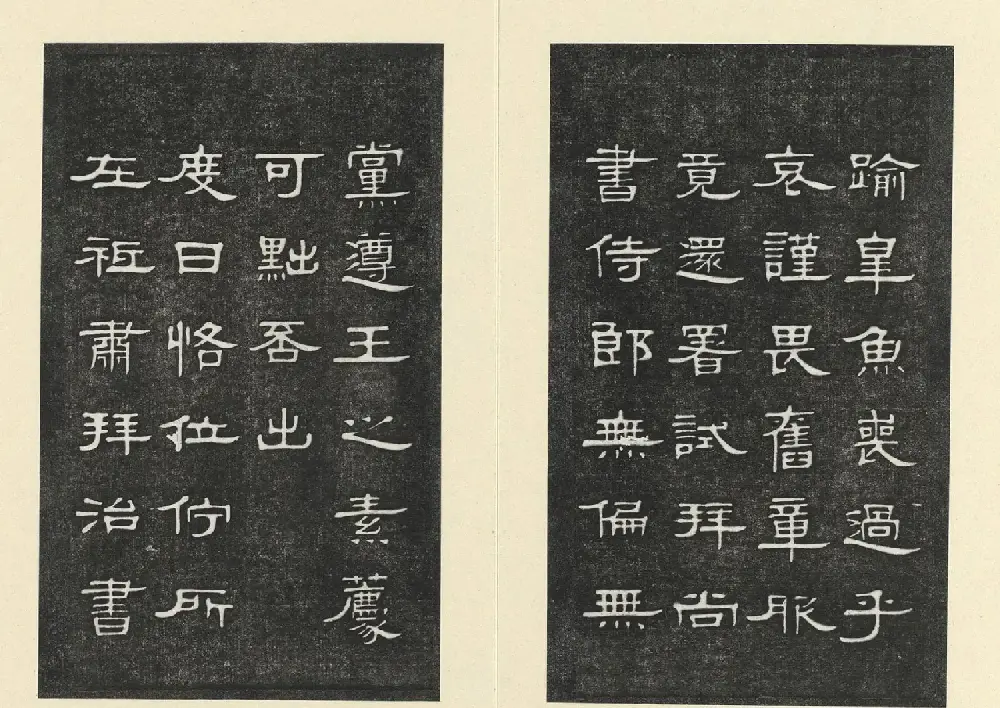 踰皐魚喪過乎
哀謹畏舊章服
竟還署試拜尚
書侍郎無偏無
黨遵王之素薦
可黜否出
度日恪位佇所
在祗肅拜治書